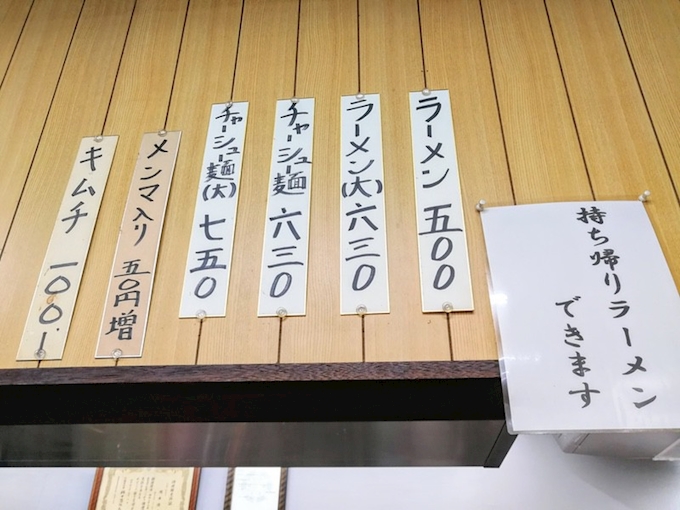 ラーメン 五〇〇
ラーメン(大) 六三〇
チャーシュー麺 六三〇
チャーシュー麺(大) 七五〇
メンマ入り 五〇円増
キムチ 一〇〇.
持ち帰りラーメン
できます